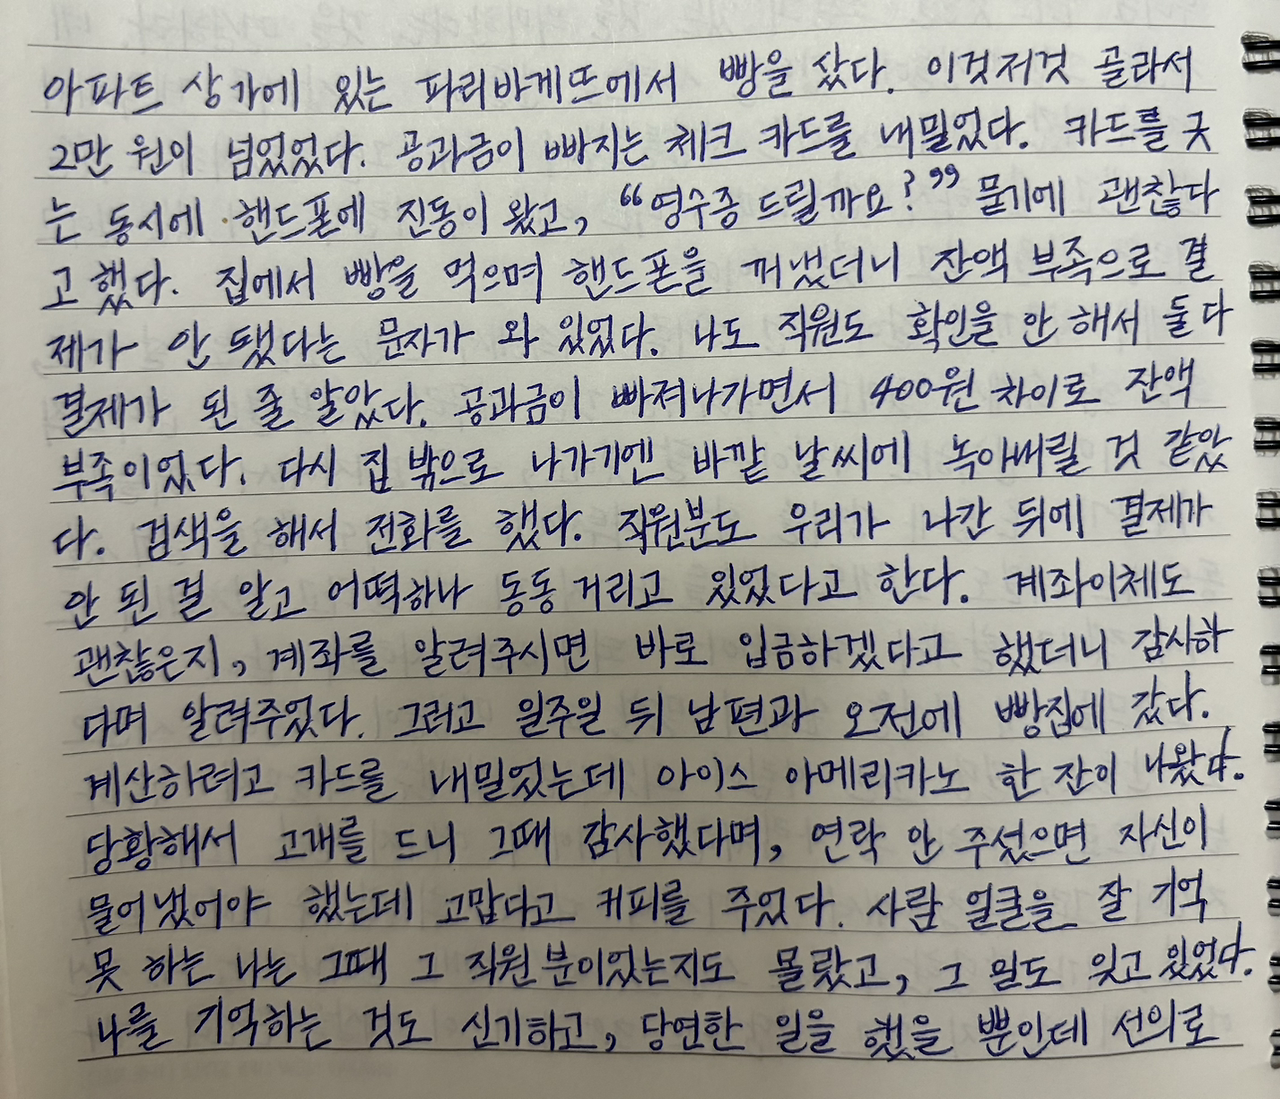 아파트 상가에 있는 파리바게뜨에서 빵을 샀다. 이것저것 골라서
2만 원이 넘었었다. 공과금이 빠지는 체크 카드를 내밀었다. 카드를 긋
는 동시에 핸드폰에 진동이 왔고, "영수증 드릴까요?" 묻기에 괜찮다
고 했다. 집에서 빵을 먹으며 핸드폰을 꺼냈더니 잔액 부족으로 결
제가 안 됐다는 문자가 와 있었다. 나도 직원도 확인을 안 해서 둘 다
결제가 된 줄 알았다. 공과금이 빠져나가면서 400원 차이로 잔액
부족이었다. 다시 집 밖으로 나가기엔 바깥 날씨에 녹아버릴 것 같았
다. 검색을 해서 전화를 했다. 직원분도 우리가 나간 뒤에 결제가
안 된 걸 알고 어떡하나 동동거리고 있었다고 한다. 계좌이체도
괜찮은지, 계좌를 알려주시면 바로 입금하겠다고 했더니 감사하
다며 알려주었다. 그러고 일주일 뒤 남편과 오전에 빵집에 갔다.
계산하려고 카드를 내밀었는데 아이스 아메리카노 한 잔이 나왔다.
당황해서 고개를 드니 그때 감사했다며, 연락 안 주셨으면 자신이
물어냈어야 했는데 고맙다고 커피를 주었다. 사람 얼굴을 잘 기억
못 하는 나는 그때 그 직원분이었는지도 몰랐고, 그 일도 잊고 있었다.
나를 기억하는 것도 신기하고, 당연한 일을 했을 뿐인데 선의로